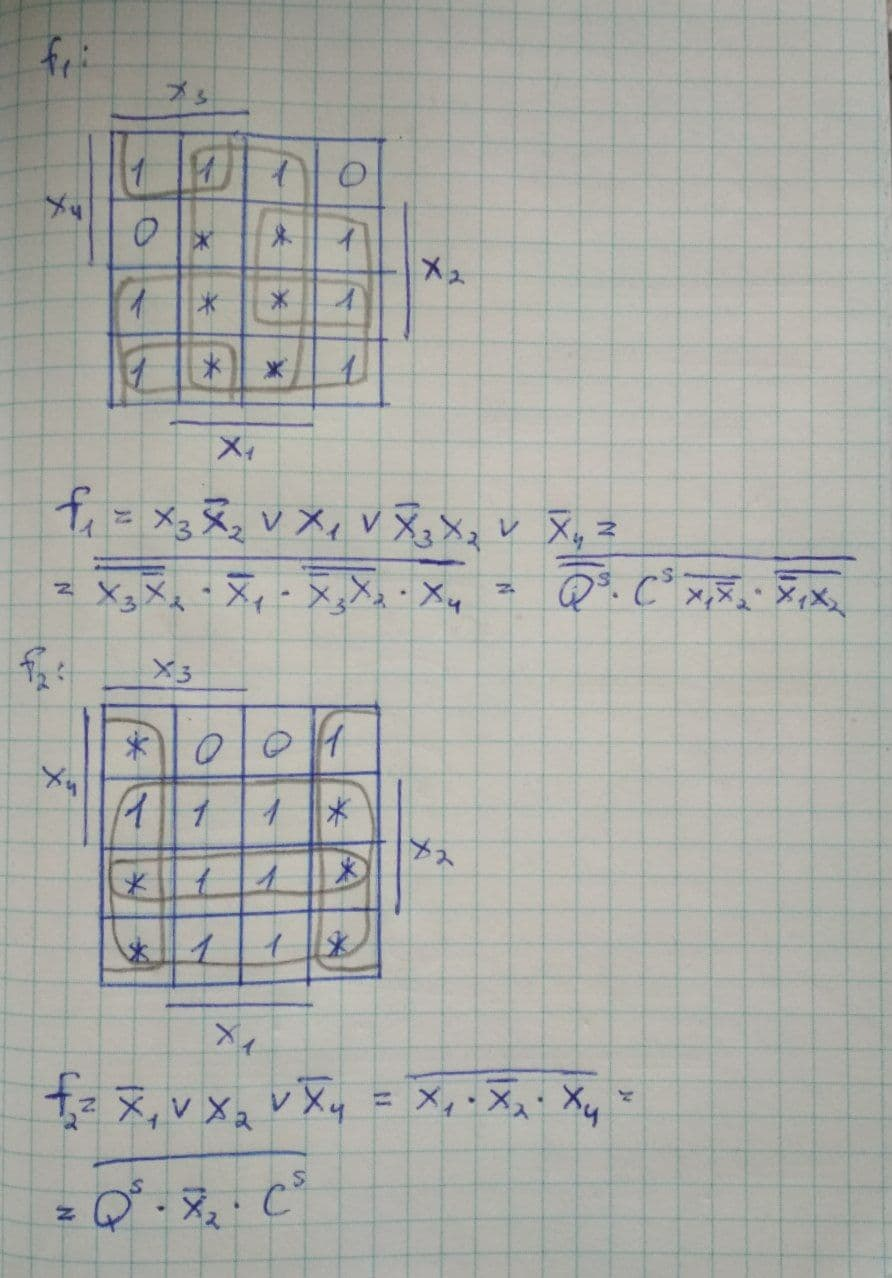 f₁:
x₃
1 1 1 0
x₄
0 * * 1
x₂
1 * * 1
1 * * 1
x₁
f₁ = x₃x̅₂ ∨ x₁ ∨ x̅₃x₂ ∨ x̅₄ =
= \overline{\overline{x₃x̅₂} · x̅₁ · \overline{x̅₃x₂} · x₄} = \overline{\overline{Q}ˢ · Cˢ \overline{x₁x̅₂} · \overline{x̅₁x₂}}
f₂:
x₃
* 0 0 1
x₄
1 1 1 *
x₂
* 1 1 *
* 1 1 *
x₁
f₂ = x̅₁ ∨ x₂ ∨ x̅₄ = \overline{x₁ · x̅₂ · x₄} =
= \overline{Qˢ · x̅₂ · Cˢ}